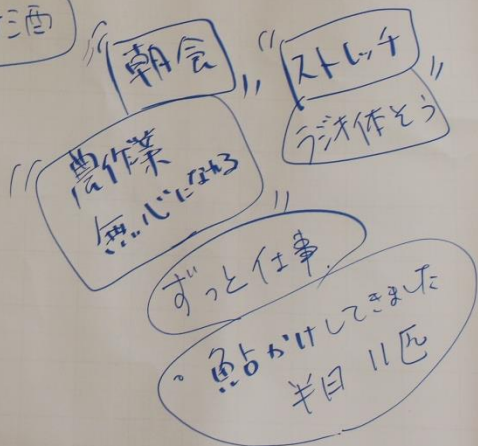 酒
朝会
ストレッチ
ラジオ体そう
農作業
無心になれる
ずっと仕事.
・鮎かけしてきました
半日 11匹